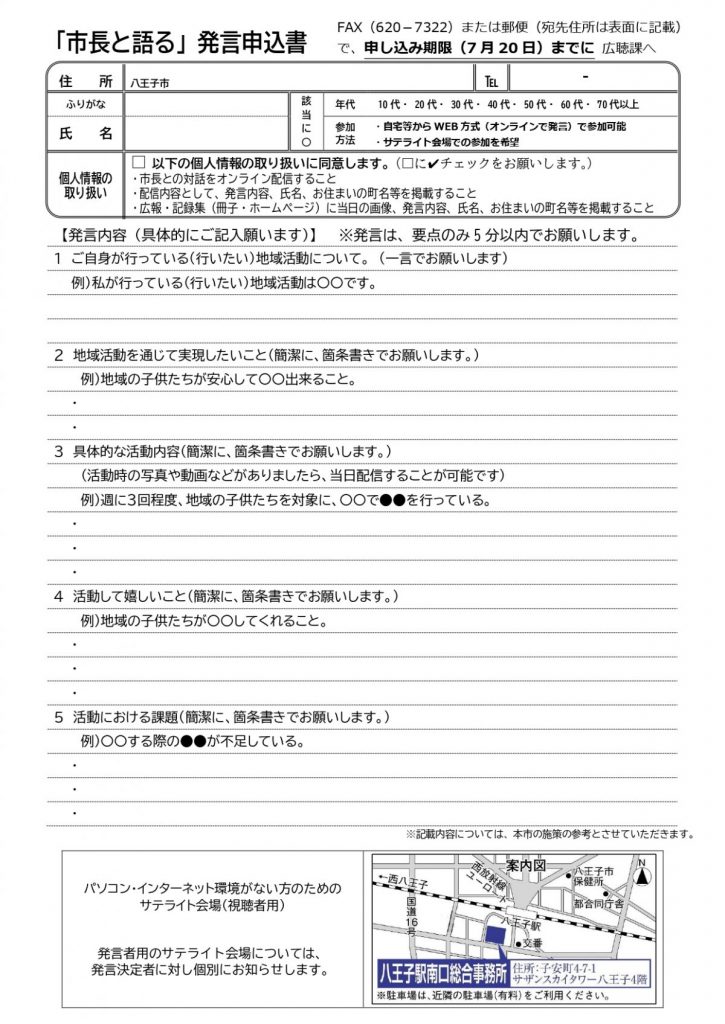 「市長と語る」発言申込書
FAX（620－7322）または郵便（宛先住所は表面に記載）
で、申し込み期限（7月20日）までに 広聴課へ
住　所
八王子市
℡
－
ふりがな
氏　名
該当に○
年代
10代・ 20代・ 30代・ 40代・ 50代・ 60代・ 70代以上
参加方法
・自宅等からWEB方式（オンラインで発言）で参加可能
・サテライト会場での参加を希望
個人情報の
取り扱い
□ 以下の個人情報の取り扱いに同意します。（□に✔チェックをお願いします。）
・市長との対話をオンライン配信すること
・配信内容として、発言内容、氏名、お住まいの町名等を掲載すること
・広報・記録集（冊子・ホームページ）に当日の画像、発言内容、氏名、お住まいの町名等を掲載すること
【発言内容（具体的にご記入願います）】　※発言は、要点のみ5分以内でお願いします。
1　ご自身が行っている（行いたい）地域活動について。（一言でお願いします）
例）私が行っている（行いたい）地域活動は〇〇です。
2　地域活動を通じて実現したいこと（簡潔に、箇条書きでお願いします。）
例）地域の子供たちが安心して〇〇出来ること。
・
・
3　具体的な活動内容（簡潔に、箇条書きでお願いします。）
（活動時の写真や動画などがありましたら、当日配信することが可能です）
例）週に3回程度、地域の子供たちを対象に、〇〇で●●を行っている。
・
・
・
4　活動して嬉しいこと（簡潔に、箇条書きでお願いします。）
例）地域の子供たちが〇〇してくれること。
・
・
・
5　活動における課題（簡潔に、箇条書きでお願いします。）
例）〇〇する際の●●が不足している。
・
・
・
※記載内容については、本市の施策の参考とさせていただきます。
パソコン・インターネット環境がない方のための
サテライト会場（視聴者用）
発言者用のサテライト会場については、
発言決定者に対し個別にお知らせします。
案内図
N
西放射線
ユーロード
八王子市
保健所
←西八王子
都合同庁舎
国道16号
八王子駅
交番
八王子駅南口総合事務所
住所：子安町4-7-1
サザンスカイタワー八王子4階
※駐車場は、近隣の駐車場（有料）をご利用ください。